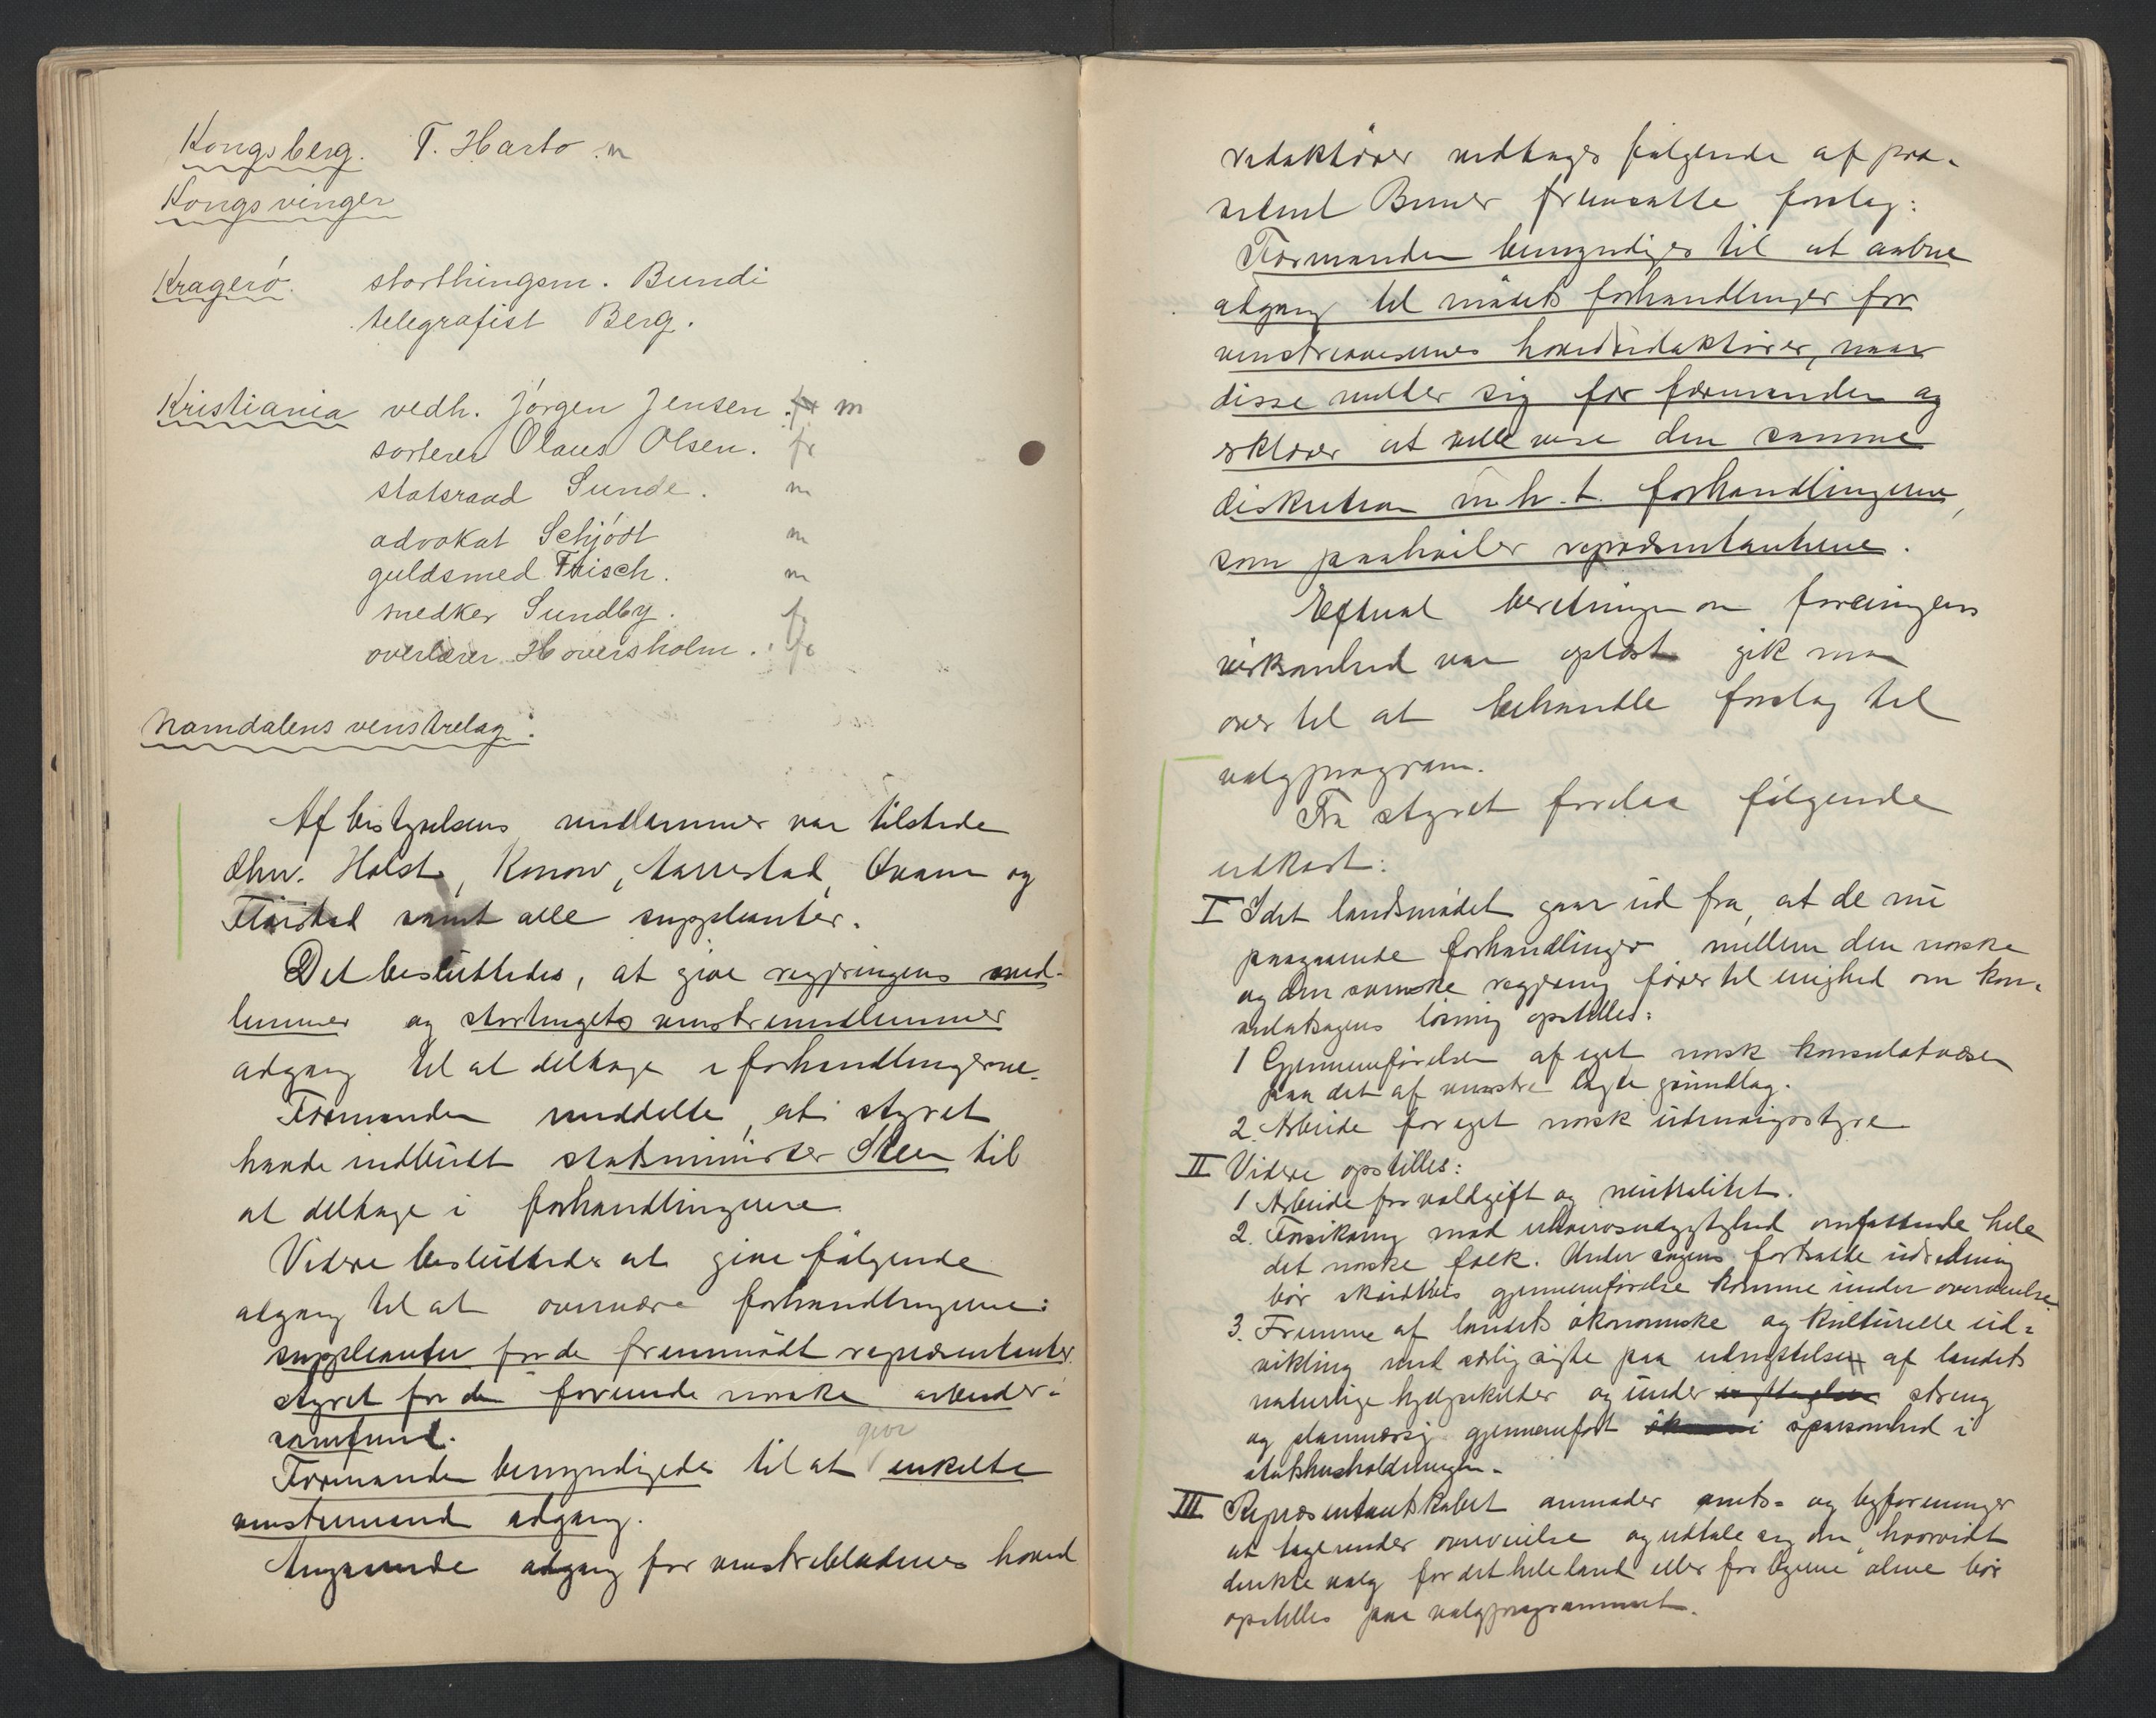 Kongsberg. T. Harbo. m
Kongsvinger
Kragerö. storthingsm. Bundi
telegrafist Berg.
Kristiania vedh. Jörgen Jensen. fr m
sorterer Olaus Olsen. fr
statsraad Sunde. m
advokat Schjödt m
guldsmed Frisch. m
snedker Sundby. fr
overlærer Hoversholm. fr
Namdalens venstrelag:
Af bistyrelsens medlemmer var tilstede
dhrr. Holst, Konow, Aarrestad, Qvam og
Fløistad samt alle suppleanter.
Det besluttedes, at give regjeringens med-
lemmer og stortingets venstremedlemmer
adgang til at deltage i forhandlingerne.
Formanden meddelte, at styret
havde indbudt statsminister Steen til
at deltage i forhandlingerne
Videre besluttedes at give følgende
adgang til at overvære forhandlingerne:
suppleanter for de fremmødt repræsentanter
styret for de forenede norske arbeider-
samfund.
Formanden bemyndigedes til at give enkelte
venstremænd adgang.
Angaaende adgang for venstrebladenes hoved
redaktører vedtoges følgende af præ-
sident fremsatte forslag:
Formanden bemyndiges til at aabne
adgang til mødets forhandlinger for
venstreavisernes hovedredaktører, naar
disse melder sig for formanden og
erklærer at ville vise den samme
diskretion m.h.t. forhandlingerne,
som paahviler repræsentanterne.
Efterat beretningen om foreningens
virksomhed var oplæst gik man
over til at behandle forslag til
valgprogram.
Fra styret forelaa følgende
udkast:
I Idet landsmødet gaar ud fra, at de nu
paagaaende forhandlinger mellem den norske
og den svenske regjering fører til enighed om kon-
sulatsagens løsning opstilles:
1 Gjennemførelsen af eget norsk konsulatvæsen
paa det af venstre lagte grundlag.
2. Arbeide for eget norsk udenrigsstyre
II Videre opstilles:
1 Arbeide for voldgift og neutralitet.
2. Forsikring mod uhervervsdygtighed omfattende hele
det norske folk. Under sagens fortsatte udredning
bør skridtvis gjennemførelse komme under overveielse
3. Fremme af landets økonomiske og kulturelle ud-
vikling med særlig sigte paa udnyttelsen af landets
naturlige hjelpekilder og under streng
og planmæssig gjennemført sparsomhed i
statshusholdningen.
III Repræsentantskabet anmoder amts- og byforeninger
at tage under overveielse og udtale sig om, hvorvidt
direkte valg for det hele land eller for byerne alene bør
opstilles paa valgprogrammet.